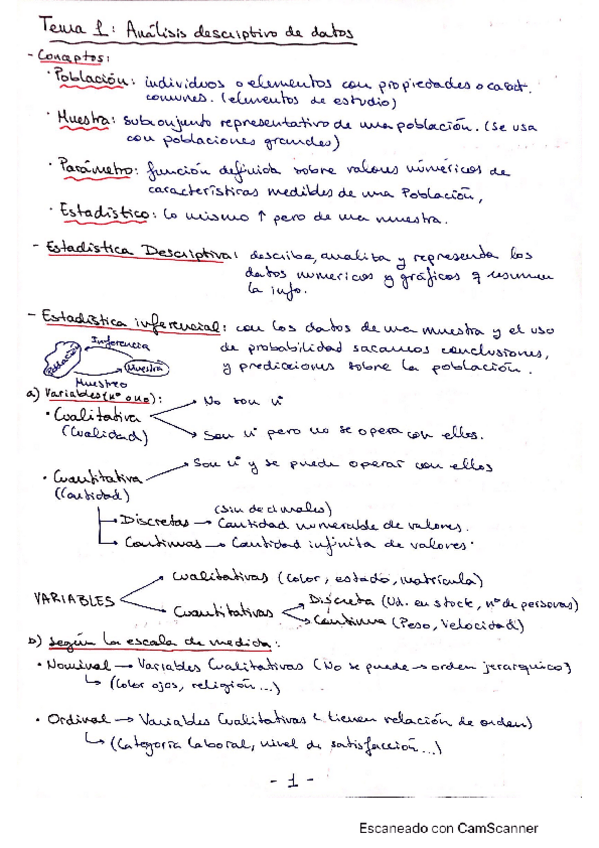 Tema 1: Análisis descriptivo de datos
- Conceptos:
· Población: individuos o elementos con propiedades o caract.
comunes. (elementos de estudio)
· Muestra: subconjunto representativo de una población. (se usa
con poblaciones grandes)
· Parámetro: función definida sobre valores númericos de
características medibles de una Población,
· Estadístico: lo mismo ↑ pero de una muestra.
- Estadística Descriptiva: describe, analiza y representa los
datos numericos y gráficos q resumen
la info.
- Estadística inferencial: con los datos de una muestra y el uso
de probabilidad sacamos conclusiones,
y predicciones sobre la población.
Inferencia
Población
Muestra
Muestreo
a) Variables (nº o no):
· Cualitativa → No son nº
(Cualidad) → Son nº pero no se opera con ellos.
· Cuantitativa → Son nº y se puede operar con ellos
(Cantidad)
(Sin decimales)
→ Discretas → Cantidad numerable de valores.
→ Continuas → Cantidad infinita de valores.
VARIABLES → Cualitativas (Color, estado, matrícula)
→ Cuantitativas → Discreta (Ud. en stock, nº de personas)
→ Continua (Peso, Velocidad)
b) Según la escala de medida:
· Nominal → Variables Cualitativas (No se puede → orden jerarquico)
↳ (Color ojos, religión...)
· Ordinal → Variables Cualitativas (tienen relación de orden)
↳ (Categoría laboral, nivel de satisfacción...)
- 1 -
Escaneado con CamScanner